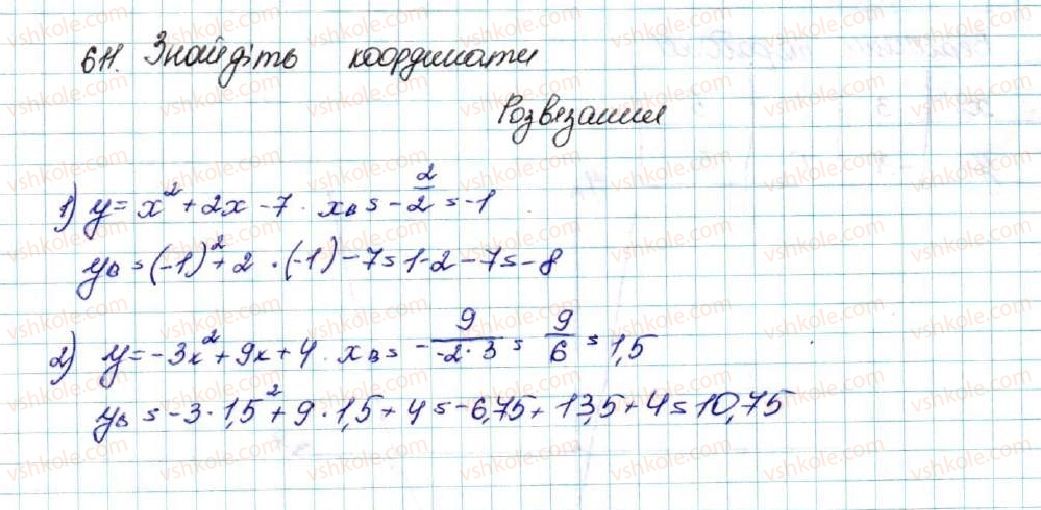 611. Знайдіть координати
Розвязання
1) y = x² + 2x - 7. xв = - 2/2 = -1
yв = (-1)² + 2 · (-1) - 7 = 1 - 2 - 7 = -8
2) y = -3x² + 9x + 4. xв = - 9/(-2·3) = 9/6 = 1,5
yв = -3 · 1,5² + 9 · 1,5 + 4 = -6,75 + 13,5 + 4 = 10,75
vshkole.com